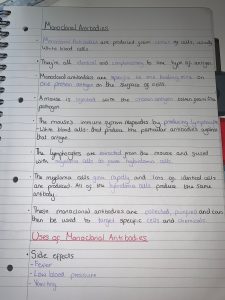 Monoclonal Antibodies
- Monoclonal Antibodies are produced from clones of cells, usually
white blood cells.
- They're all identical and complementary to one type of antigen
- Monoclonal antibodies are specific to one binding site on
one protein antigen on the surface of cells.
- A mouse is injected with the chosen antigen taken from the
pathogen
- The mouse's immune system responds by producing lymphocytes
- White blood cells that produce the particular antibodies against
that antigen.
- The lymphocytes are extracted from the mouse and fused
with myeloma cells to make hybridoma cells.
- The myeloma cells grow rapidly and lots of identical cells
are produced. All of the hybridoma cells produce the same
antibody.
- These monoclonal antibodies are collected, purified and can
then be used to target specific cells and chemicals.
Uses of Monoclonal Antibodies
• Side effects
- Fever
- Low blood pressure
- Vomiting